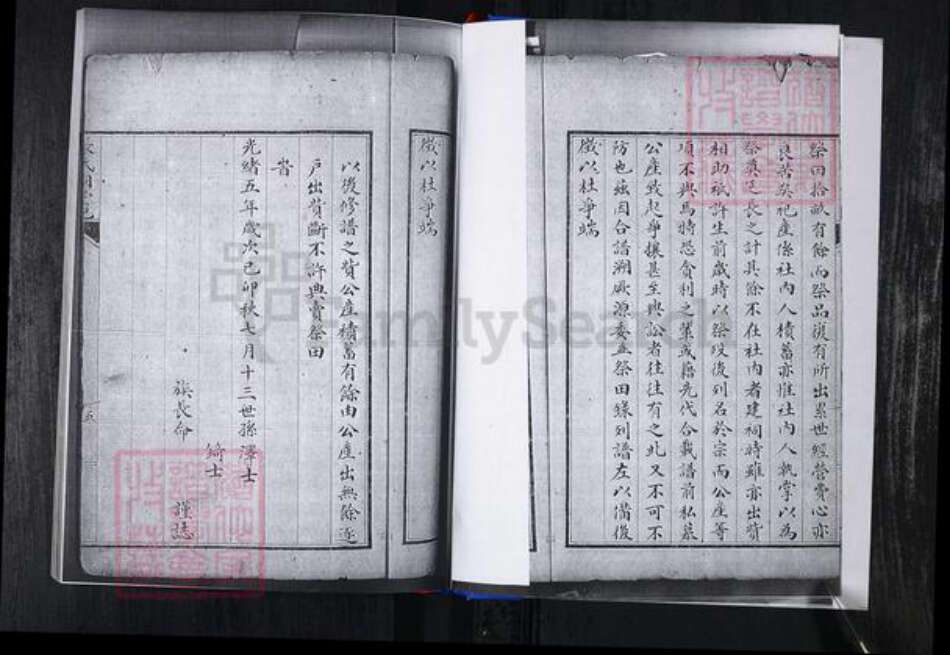 祭田拾畝有餘而祭品復有所出累世經營費心亦
良苦矣祀產係社內人積蓄亦惟社內人執掌以為
祭奠久長之計其餘不在社內者建祠時雖亦出貲
相助祇許生前歲時以祭歿後列名於宗而公產等
項不與焉特恐貪利之輩或藉先代合載譜前私墓
公產致起爭攘甚至興訟者往往有之此又不可不
防也茲因合譜溯厥源委並祭田錄列譜左以備後
徵以杜爭端
徵以杜爭端
以後修譜之貲公產積蓄有餘由公產出無餘逐
戶出貲斷不許典賣祭田
旹
光緒五年歲次己卯秋七月十三世孫澤士
錡士
族長命
謹誌
五
FamilySearch